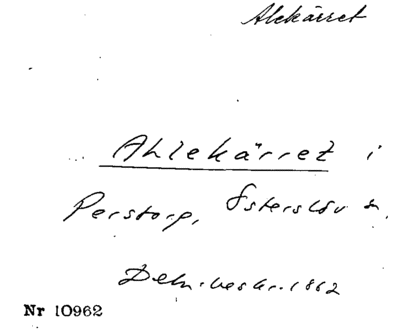 Alekärret
Ahlekärret i
Perstorp, Österslöv sn.
Deln.beskr. 1862
Nr 10962